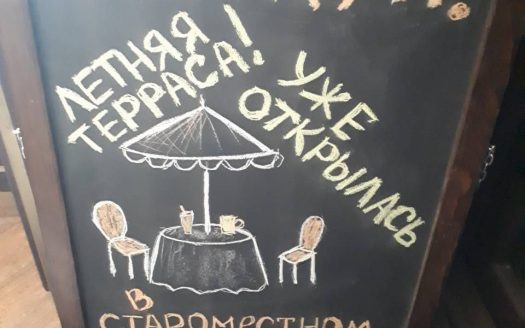 ЛЕТНЯЯ
ТЕРРАСА!
УЖЕ
ОТКРЫЛАСЬ
В
СТАРОМЕСТНОМ